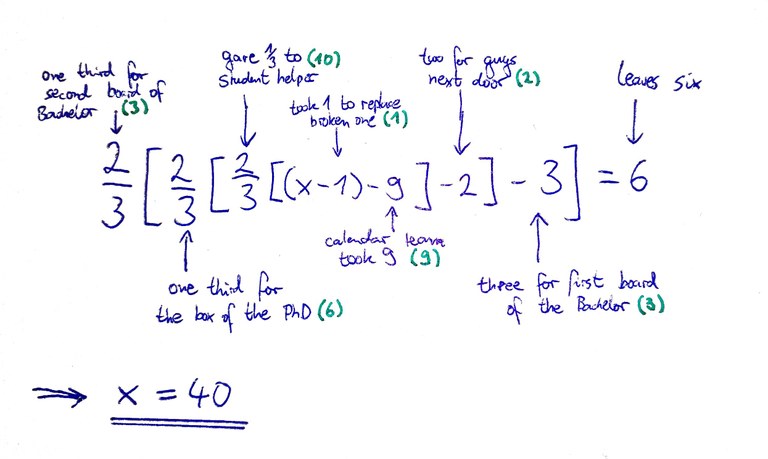 one third for
second board of
Bachelor (3)
gave 1/3 to (10)
student helper
took 1 to replace
broken one (1)
two for guys
next door (2)
leaves six
2/3 [ 2/3 [ 2/3 [(x-1)-9]-2]-3] = 6
calendar team
took 9 (9)
one third for
the box of the PhD (6)
three for first board
of the Bachelor (3)
⇒ x = 40